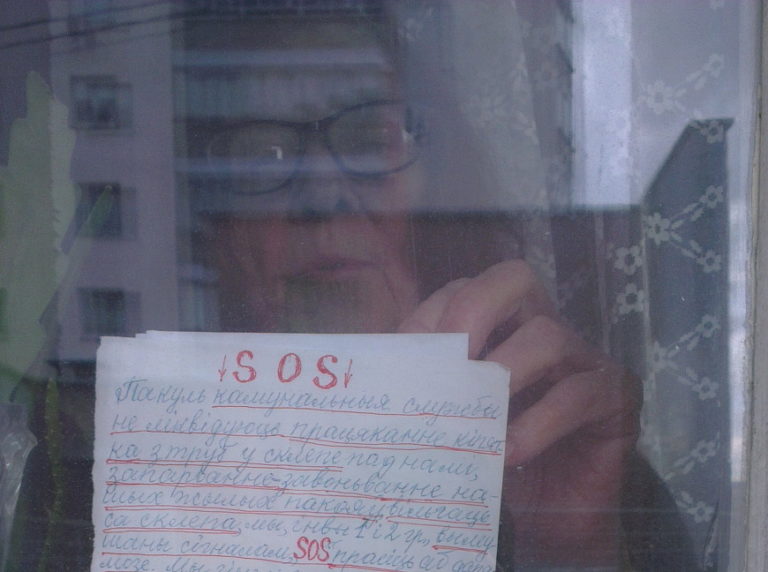 ↓SOS↓
Пакуль камунальныя службы
не ліквідуюць працяканне кіпят-
ка з труб у склепе пад намі,
запарванне-завоньванне на-
шых жылых пакояў вільгаце
са склепа, мы, інв-ы 1 і 2 гр., выму
шаны сігналам SOS прасіць аб дапа
мозе. Мы